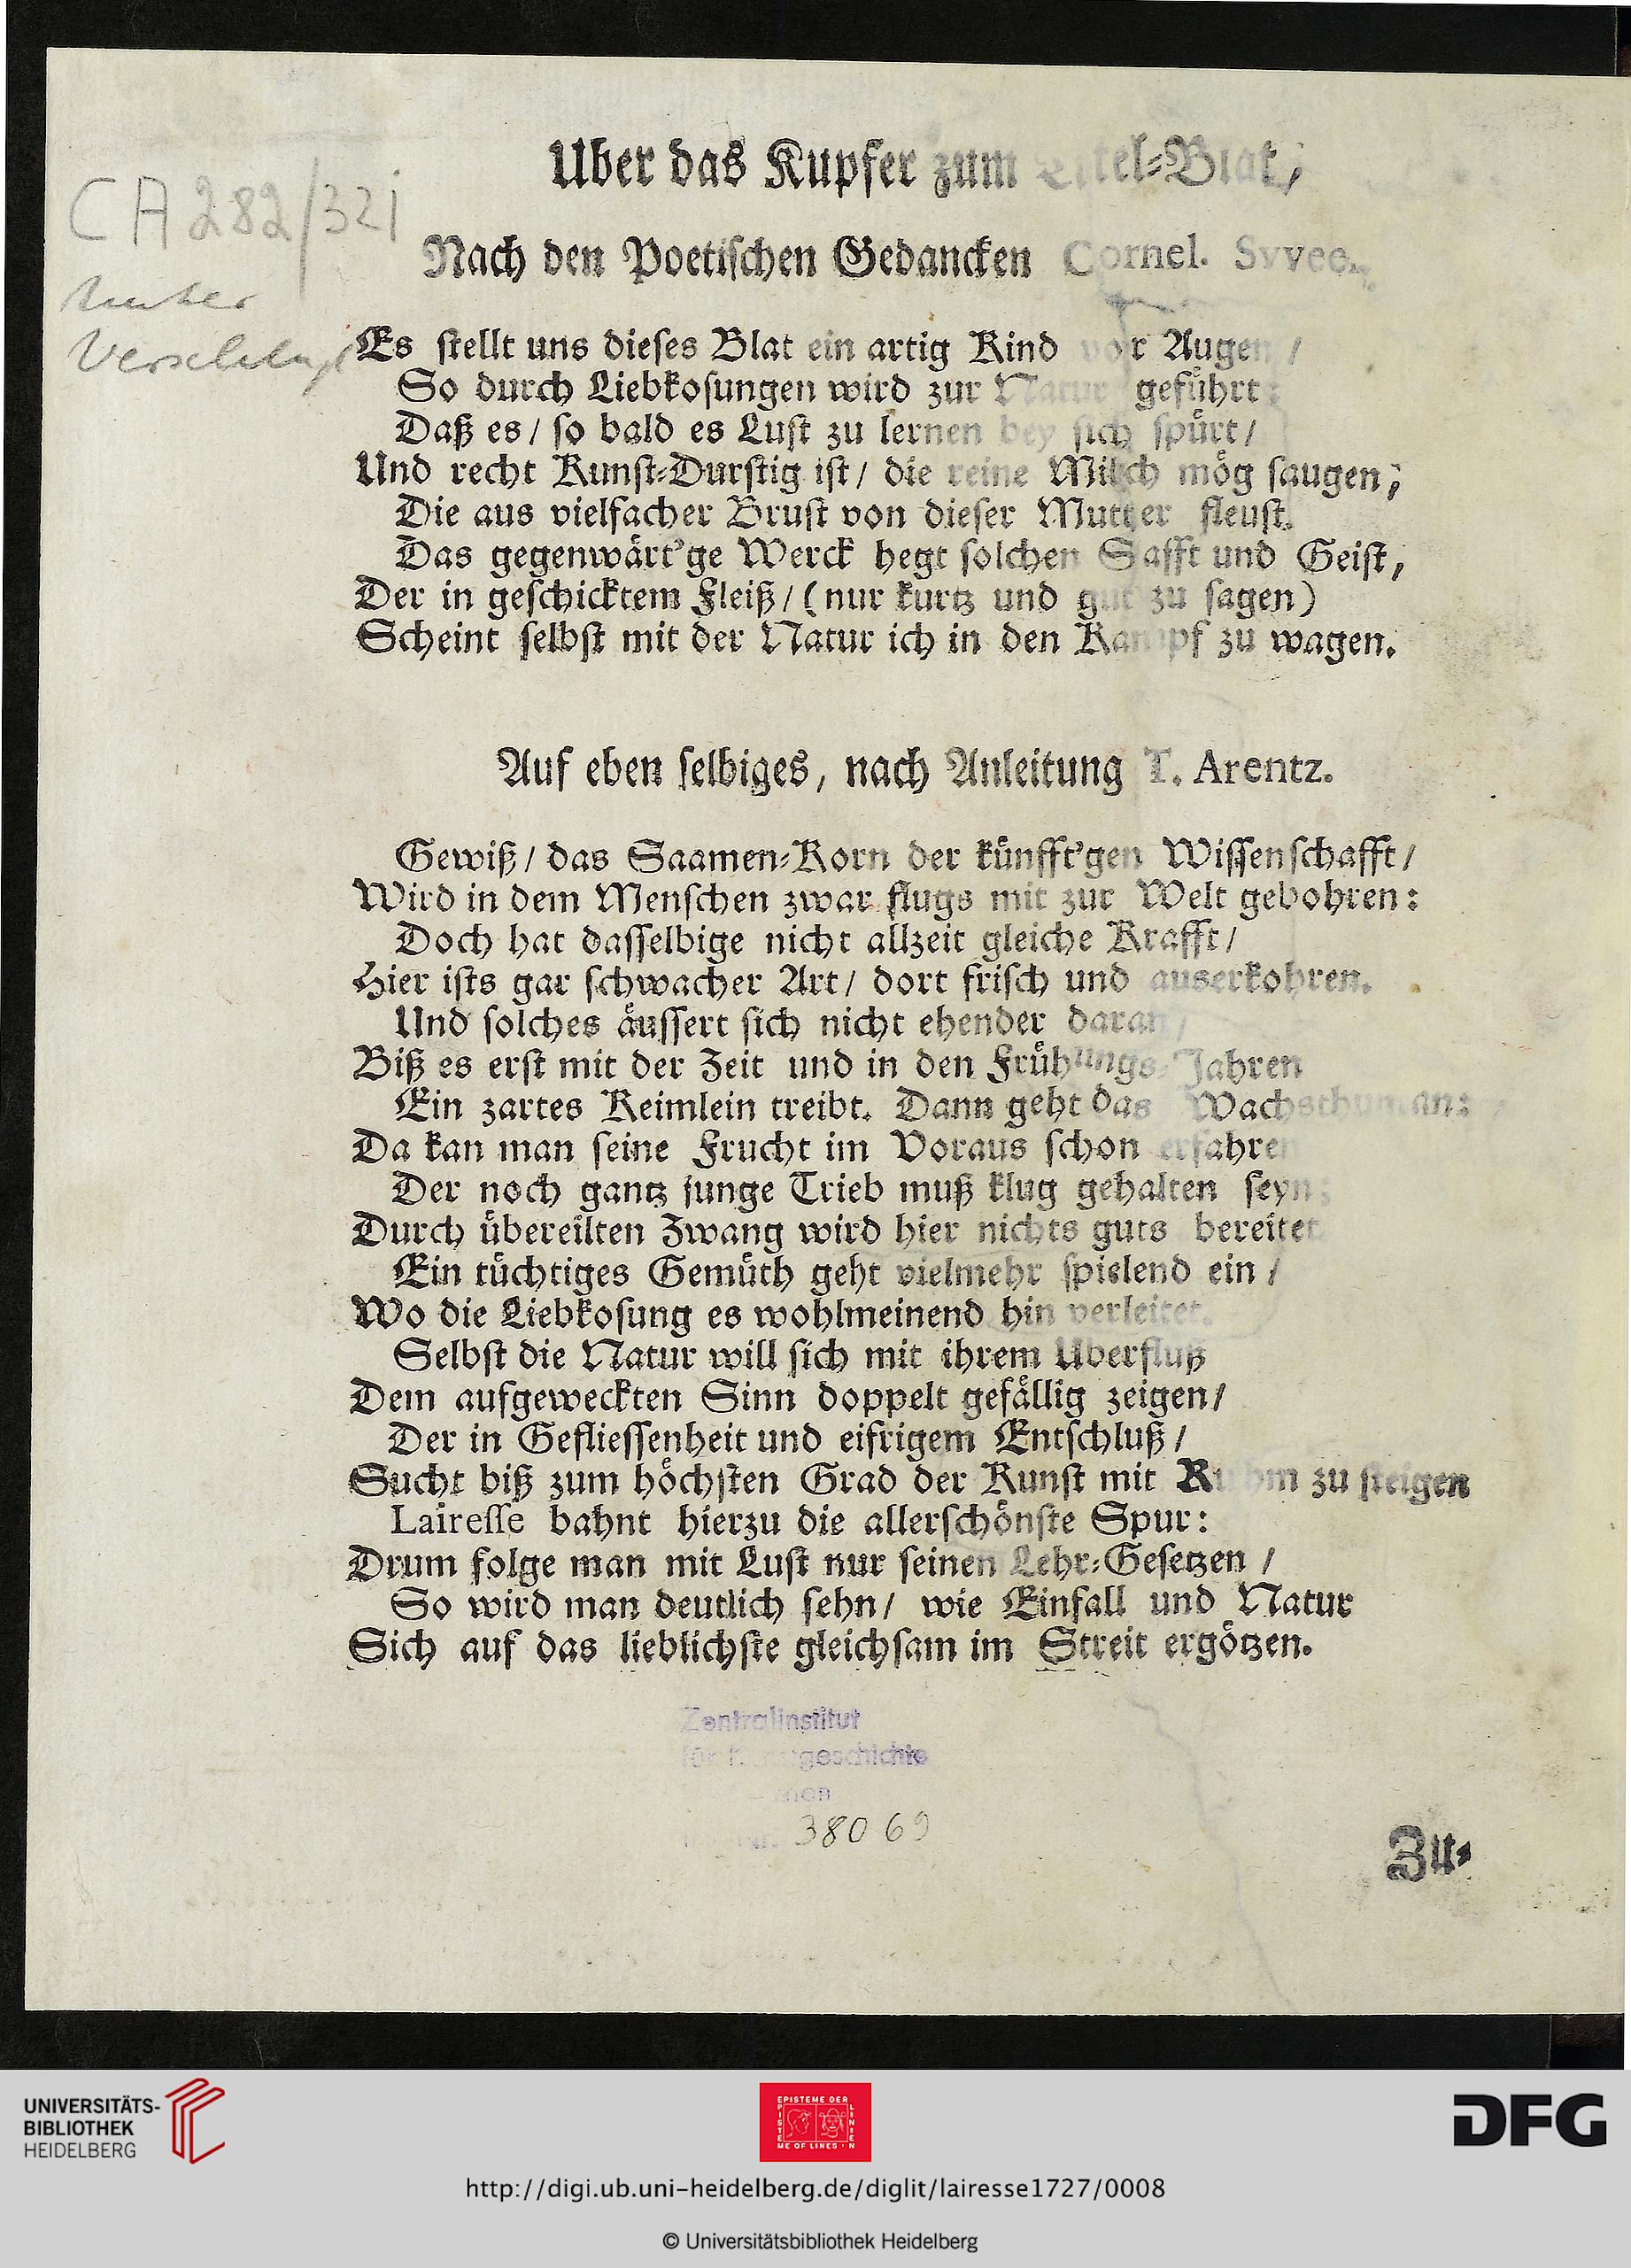 CA 282/32 i
hinter
Verschluß
Uber das Kupfer zum Titel-Blat,
Nach den Poetischen Gedancken Cornel.
Es stellt uns dieses Blat ein artig Kind vor Augen /
So durch Liebkosungen wird zur Natur geführt:
Daß es / so bald es Lust zu lernen bey sich spürt /
Und recht Kunst-Durstig ist / die reine Milch mög saugen;
Die aus vielfacher Brust von dieser Mutter fleust.
Das gegenwärt'ge Werck hegt solchen Safft und Geist,
Der in geschicktem Fleiß / (nur kurtz und gut zu sagen)
Scheint selbst mit der Natur ich in den Kampf zu wagen.
Auf eben selbiges, nach Anleitung T. Arentz.
Gewiß / das Saamen-Korn der künfft'gen Wissenschafft /
Wird in dem Menschen zwar flugs mit zur Welt gebohren:
Doch hat dasselbige nicht allzeit gleiche Krafft /
Hier ists gar schwacher Art / dort frisch und auserkohren.
Und solches äussert sich nicht ehender daran /
Biß es erst mit der Zeit und in den Frühlings-Jahren
Ein zartes Keimlein treibt. Dann geht das Wachsthum an:
Da kan man seine Frucht im Voraus schon erfahren
Der noch gantz junge Trieb muß klug gehalten seyn;
Durch übereilten Zwang wird hier nichts guts bereitet
Ein tüchtiges Gemüth geht vielmehr spielend ein /
Wo die Liebkosung es wohlmeinend hin verleitet.
Selbst die Natur will sich mit ihrem Uberfluß
Dem aufgeweckten Sinn doppelt gefällig zeigen /
Der in Gefliessenheit und eifrigem Entschluß /
Sucht biß zum höchsten Grad der Kunst mit Ruhm zu steigen
Lairesse bahnt hierzu die allerschönste Spur:
Drum folge man mit Lust nur seinen Lehr-Gesetzen /
So wird man deutlich sehn / wie Einfall und Natur
Sich auf das lieblichste gleichsam im Streit ergötzen.
Zentralinstitut
für Kunstgeschichte
38069
Zu-
UNIVERSITÄTS-
BIBLIOTHEK
HEIDELBERG
EPISTEME DER
LINIEN
EPISTE
ME OF LINES
DFG
http://digi.ub.uni-heidelberg.de/diglit/lairesse1727/0008
© Universitätsbibliothek Heidelberg